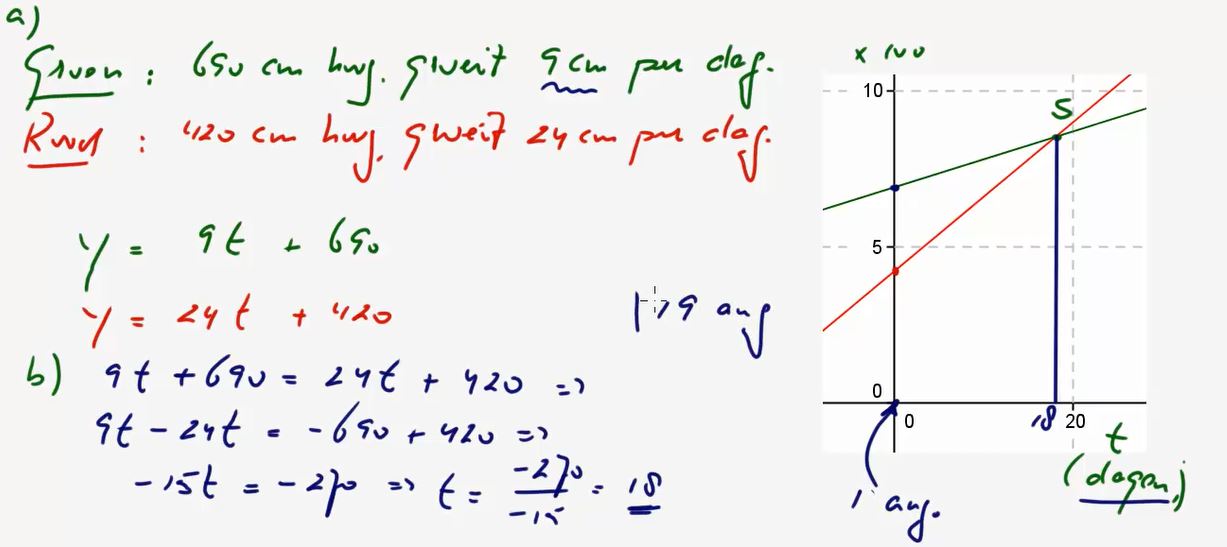 a)
Groen : 690 cm hoog. groeit 9 cm per dag.
Rood : 420 cm hoog. groeit 24 cm per dag.
y = 9t + 690
y = 24t + 420
19 aug
b) 9t + 690 = 24t + 420 =>
9t - 24t = -690 + 420 =>
-15t = -270 => t = -270/-15 = 18
x 100
10
S
5
0
0 18 20
t
(dagen)
1 aug.